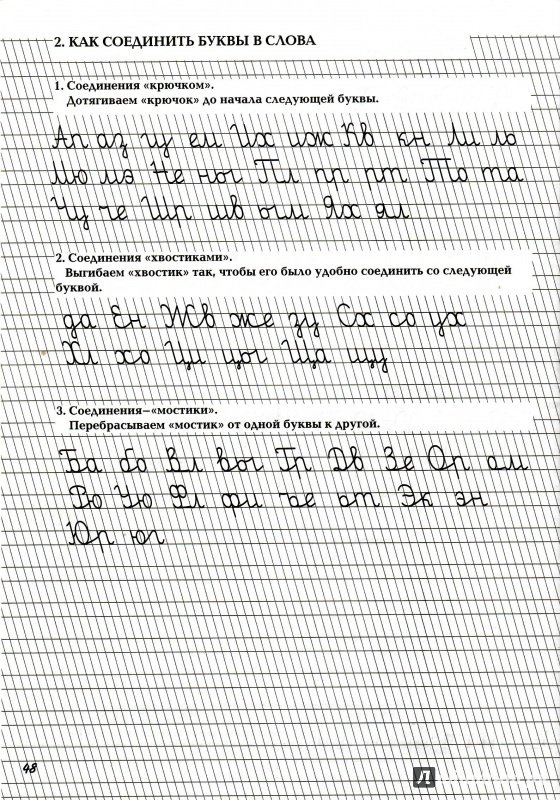 2. КАК СОЕДИНИТЬ БУКВЫ В СЛОВА
1. Соединения «крючком».
Дотягиваем «крючок» до начала следующей буквы.
Ап аз иу ем Их иж Кв кн Ли ло
Мю мэ Не ны Пл пр рт То та
Чу че Шр шв ым Ях ял
2. Соединения «хвостиками».
Выгибаем «хвостик» так, чтобы его было удобно соединить со следующей
буквой.
да Ен Жв же зу Сх со ух
Хл хо Ци цы Ща щу
3. Соединения–«мостики».
Перебрасываем «мостик» от одной буквы к другой.
Ба бо Вл вы Гр Дв Зе Ор ом
Рю Ую Фл фи ье ът Эк эн
Юр юг
48